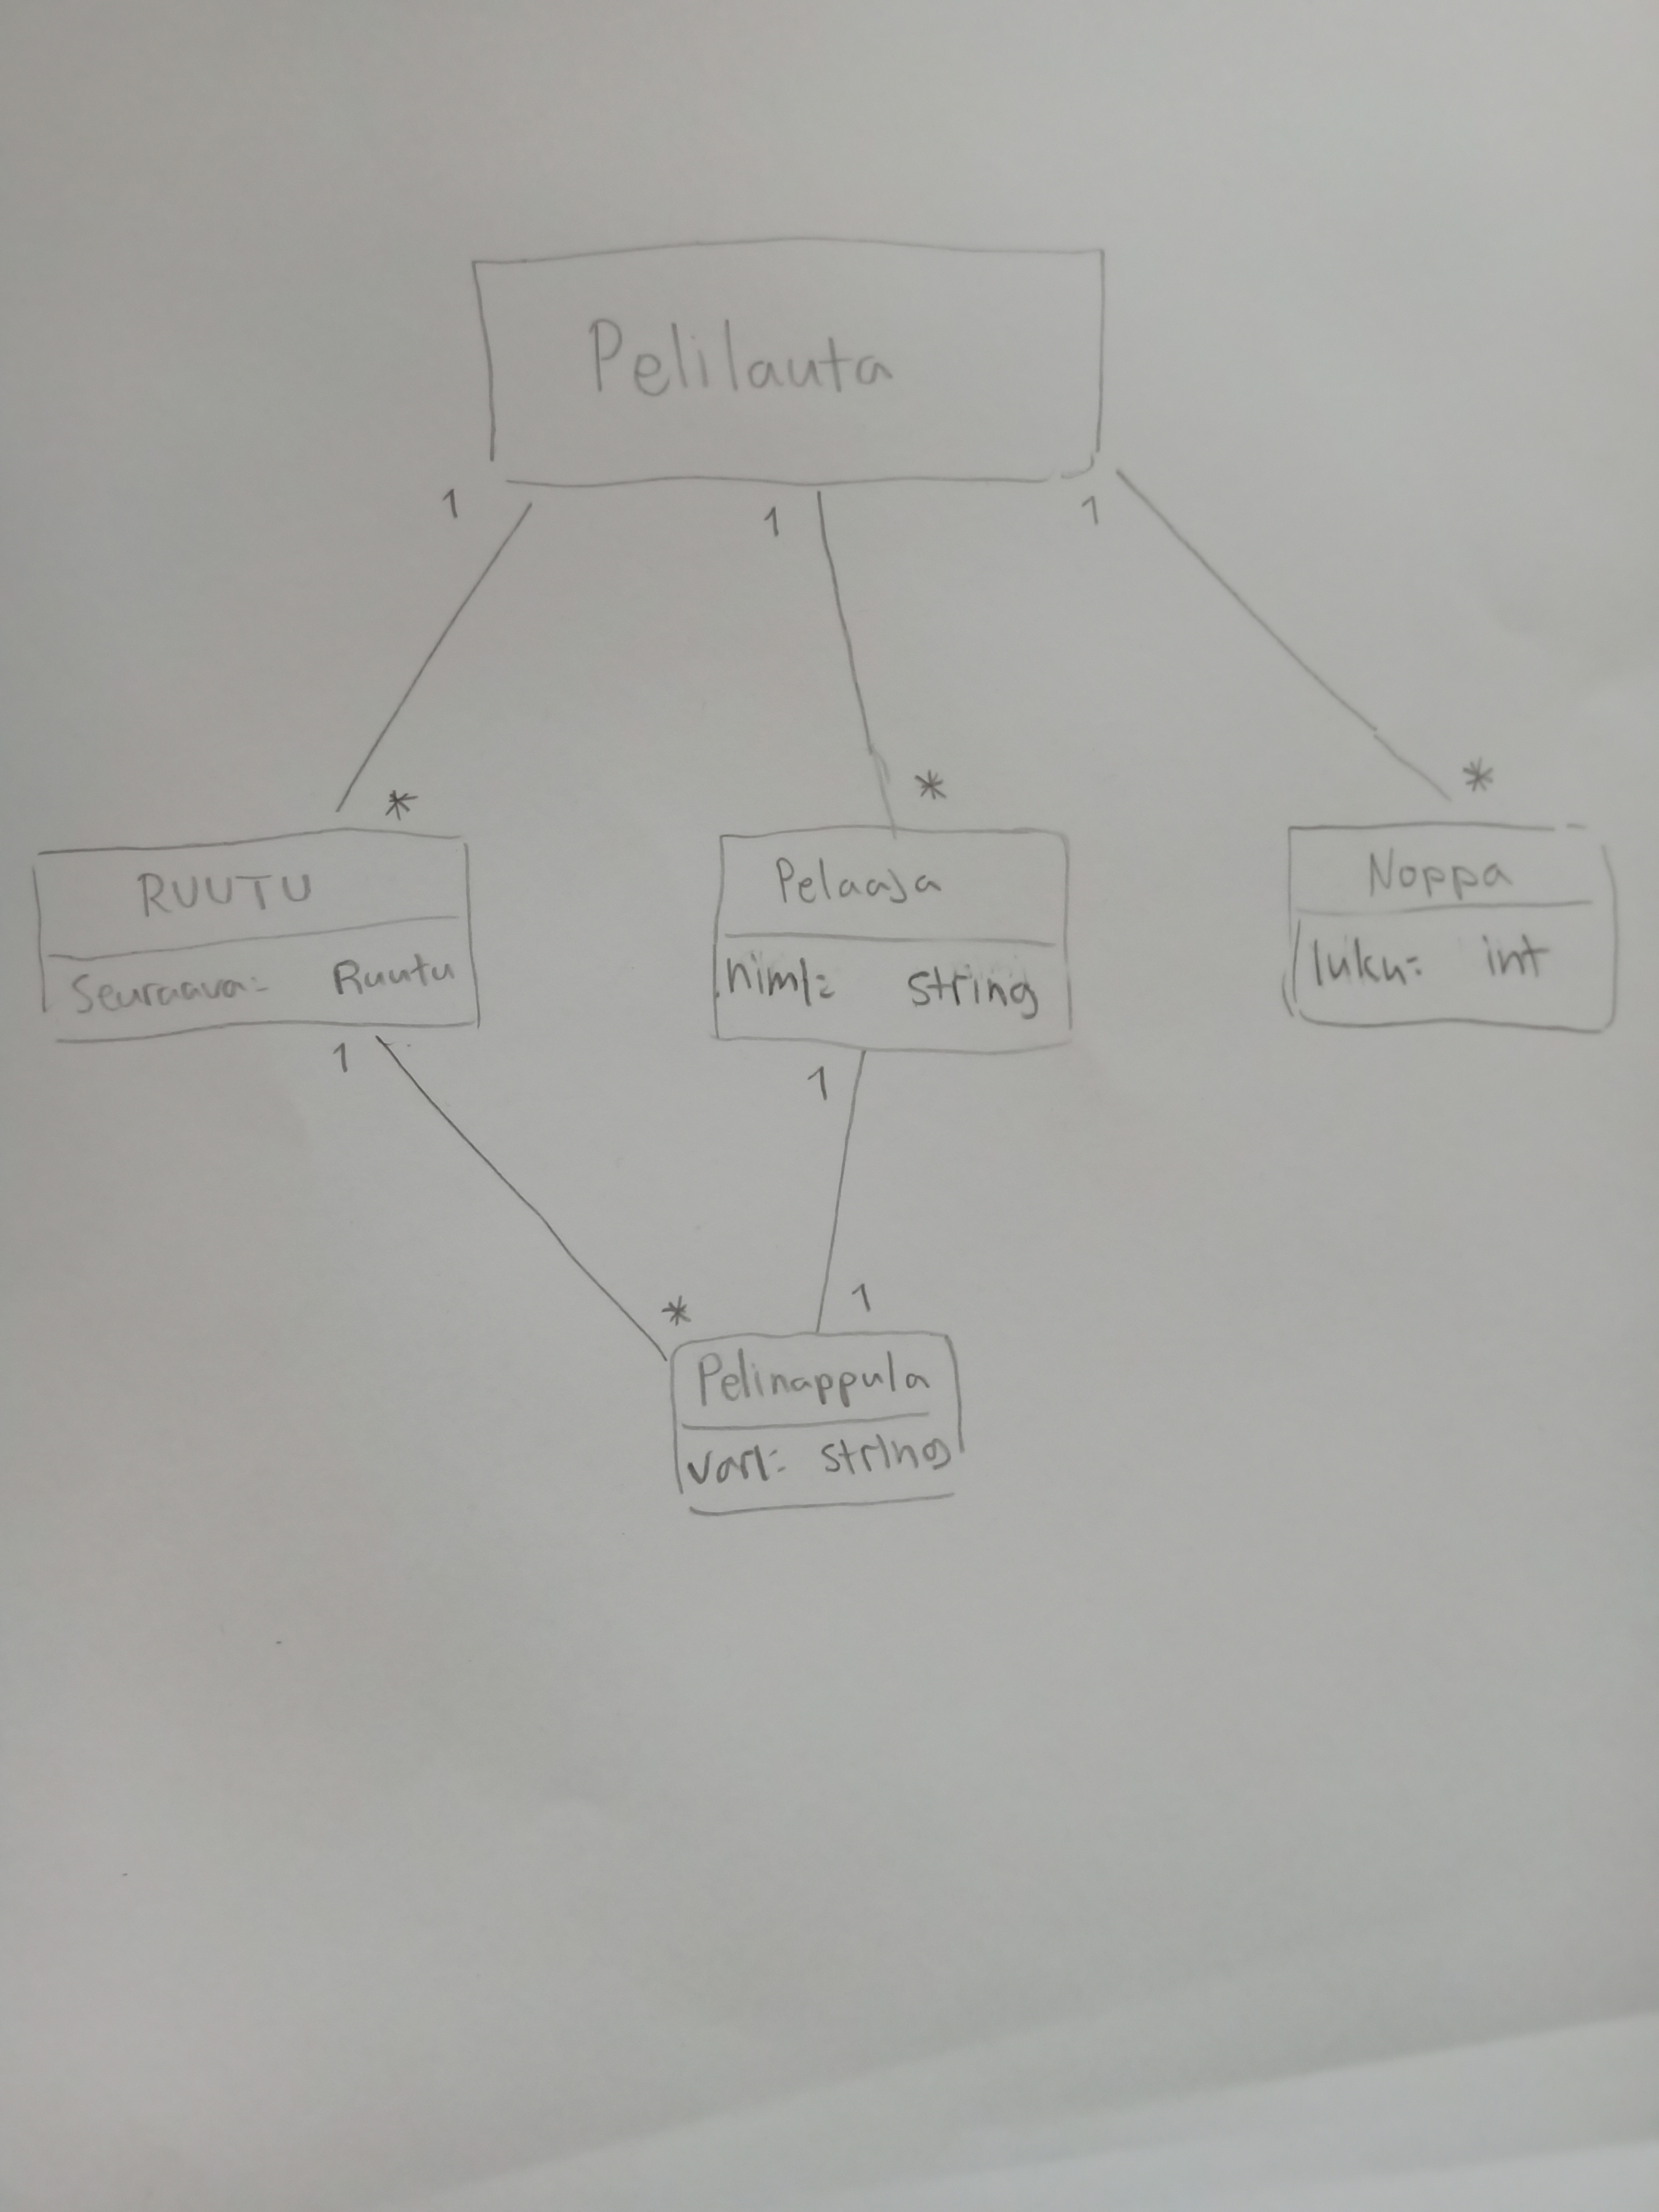 Pelilauta
1 1 1
* * *
RUUTU
Seuraava: Ruutu
Pelaaja
nimi: string
Noppa
luku: int
1 1
* 1
Pelinappula
vari: string